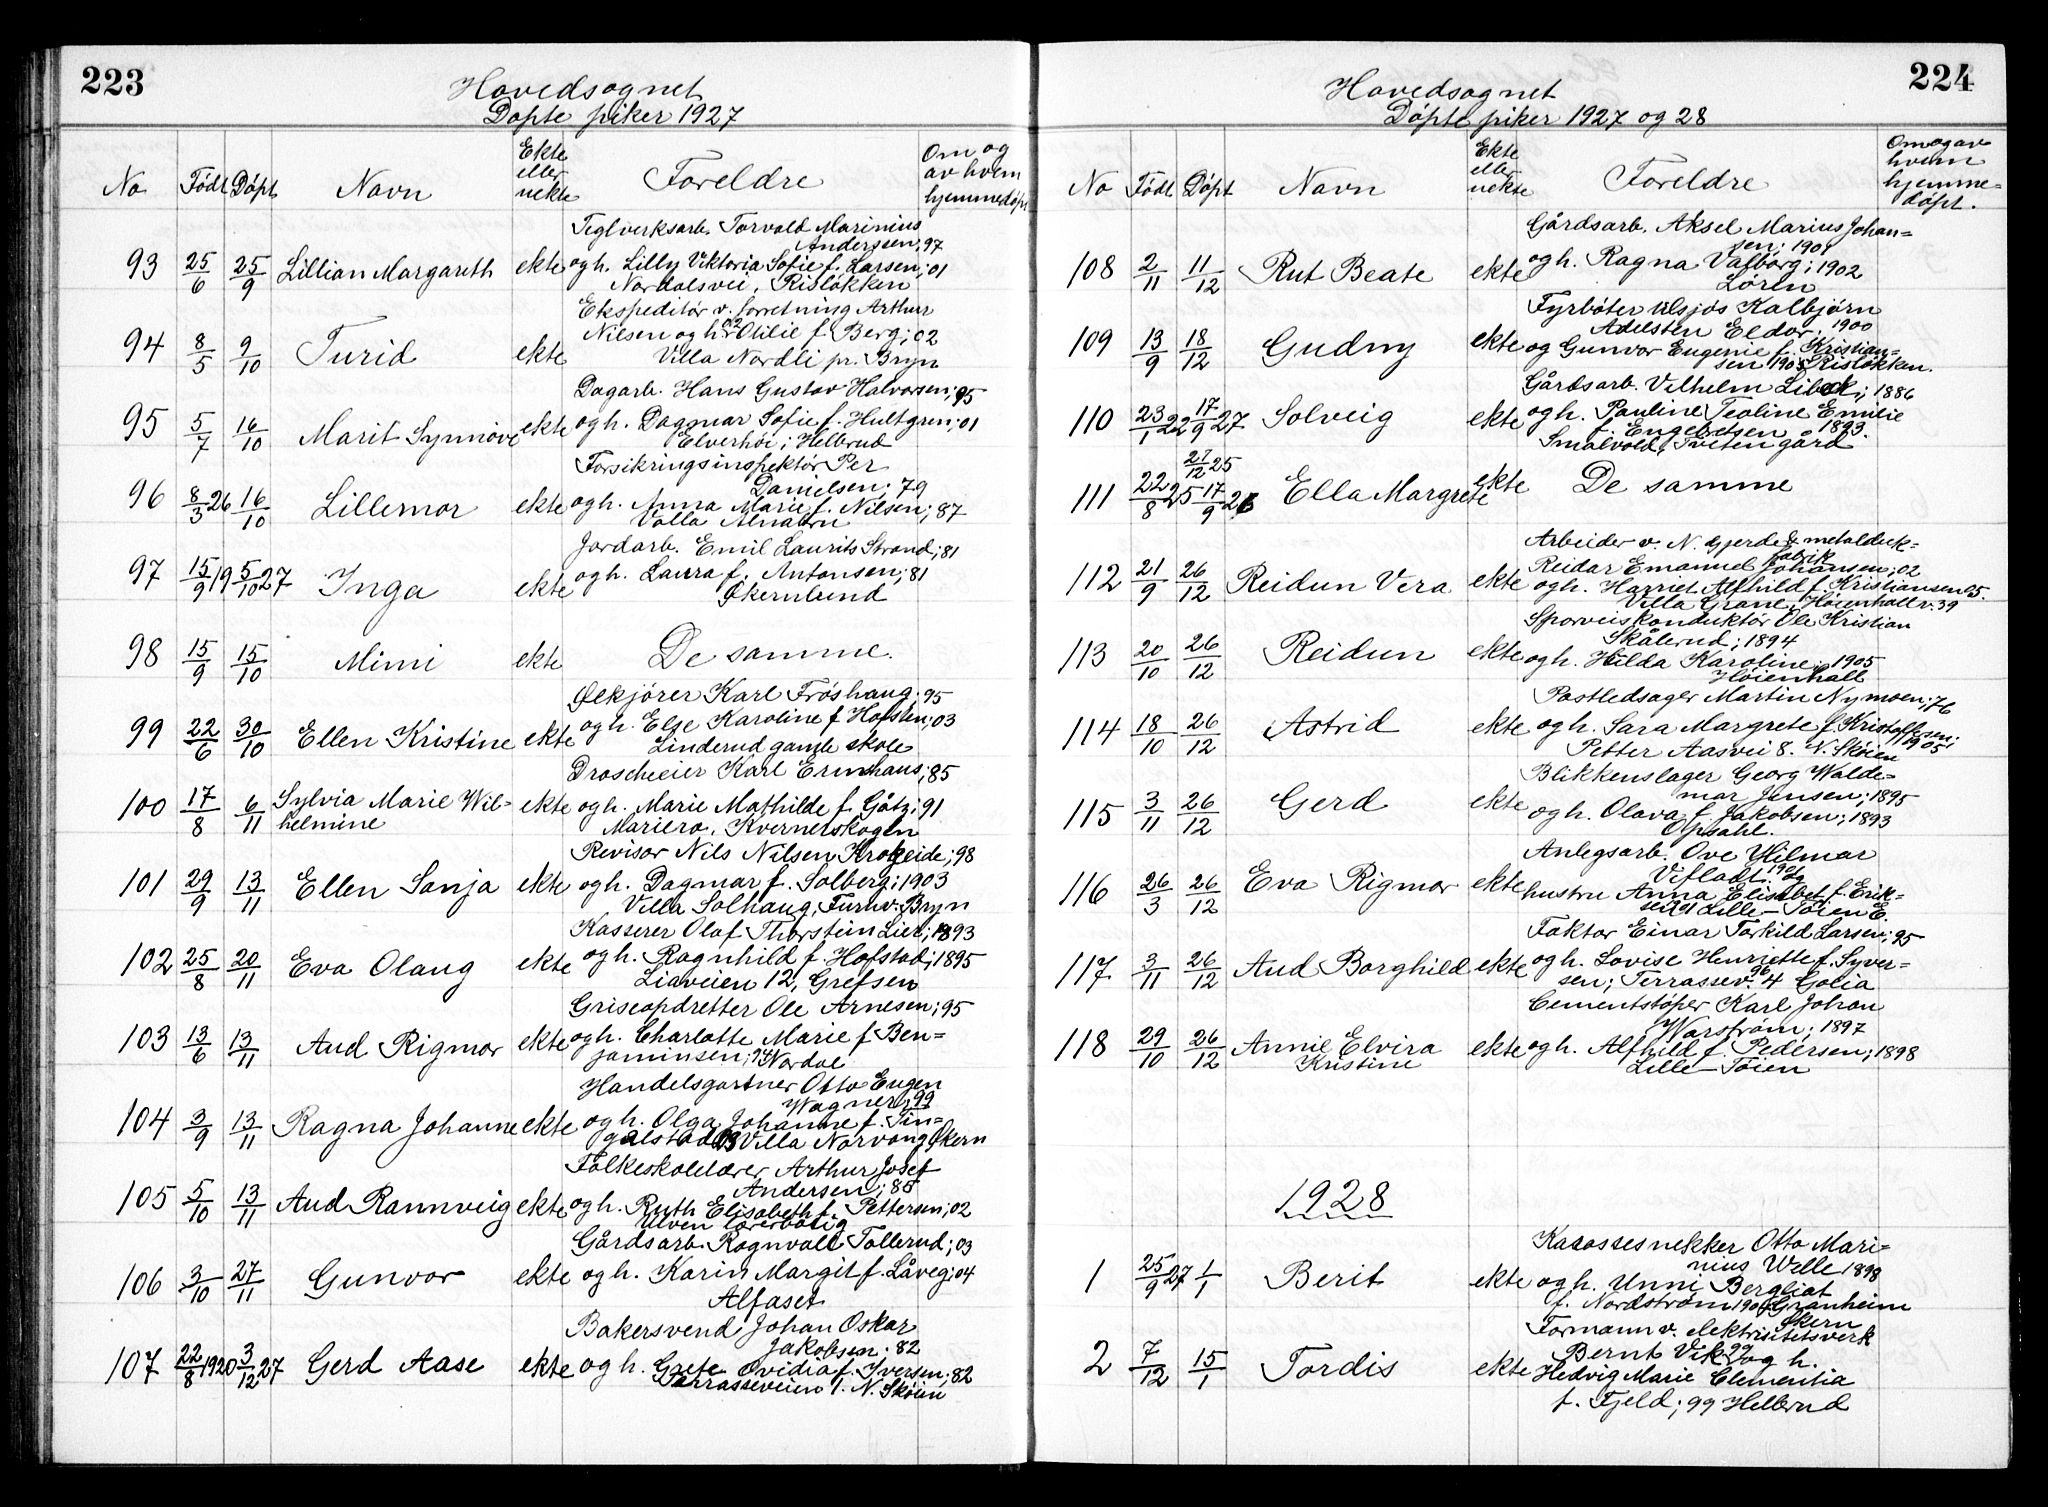 223
Hovedsognet
Døpte piker 1927
No Født Døpt Navn Ekte eller uekte Foreldre Om og av hvem hjemmedøpt
93 25/6 25/9 Lillian Margareth ekte Teglverksarb. Torvald Marinius
Anderssen; 97
og h. Lilly Viktoria Sofie f. Larsen; 01
Nordalsvei, Risløkken
94 8/5 9/10 Turid ekte Ekspeditør v. forretning Arthur
Nilsen og h. Otilie f. Berg; 02
Villa Nordli pr. Bryn
95 5/7 16/10 Marit Synnøve ekte Dagarb. Hans Gustav Halvorsen; 95
og h. Dagmar Sofie f. Hultgren; 01
Elverhøi; Helbrud
96 8/3 26 16/10 Lillemor ekte Forsikringsinspektør Per
Danielsen; 79
og h. Anna Marie f. Nilsen; 87
Valla Alnabru
97 15/9 19 5/10 27 Inga ekte Jordarb. Emil Laurits Strand; 81
og h. Laura f. Antonsen; 81
Økernlund
98 15/9 15/10 Mimi ekte De samme.
99 22/6 30/10 Ellen Kristine ekte Ølkjører Karl Frøshaug; 95
og h. Else Karoline f. Hofsten; 03
Linderud gamle skole
100 17/8 6/11 Sylvia Marie Wil-
helmine ekte Droscheeier Karl Ernshaus; 85
og h. Marie Mathilde f. Gåtz; 91
Mariero, Kvernerskogen
101 29/9 13/11 Ellen Sonja ekte Revisor Nils Nilsen Krokeide; 98
og h. Dagmar f. Solberg; 1903
Villa Solhaug, Furuv. Bryn
102 25/8 20/11 Eva Olaug ekte Kasserer Olaf Thorstein Lier; 1893
og h. Ragnhild f. Hofstad; 1895
Liaveien 12, Grefsen
103 13/6 13/11 Aud Rigmor ekte Griseopdretter Ole Arnesen; 95
og h. Charlotte Marie f. Ben-
jaminsen; Nordal
104 3/9 13/11 Ragna Johanne ekte Handelsgartner Otto Eugen
Wagner; 99
og h. Olga Johanne f. Tin-
galstad 03 Villa Norvang, Økern
105 5/10 13/11 Aud Rannveig ekte Folkeskolelærer Arthur Josef
Andersen; 85
og h. Ruth Elisabeth f. Pettersen; 02
Ulven lærerbolig
106 3/10 27/11 Gunvor ekte Gårdsarb. Ragnvald Tollerud; 03
og h. Karin Margit f. Låveg; 04
Alfaset
107 22/8 1920 3/12 27 Gerd Aase ekte Bakersvend Johan Oskar
Jakobsen; 82
og h. Grete Ovidia f. Iversen; 82
Terrasseveien 1. N. Skøien
224
Hovedsognet
Døpte piker 1927 og 28
No Født Døpt Navn Ekte eller uekte Foreldre Om og av hvem hjemme-døpt.
108 2/11 11/12 Rut Beate ekte Gårdsarb. Aksel Marius Johan-
sen; 1901
og h. Ragna Valborg; 1902
Løren
109 13/9 18/12 Gudny ekte Fyrbøter tilsjøs Kolbjørn
Adelsten Eldor; 1900
og Gunvor Eugenie f. Kristian-
sen 1905 Risløkken.
110 23/1 22 17/9 27 Solveig ekte Gårdsarb. Vilhelm Libeck; 1886
og h. Pauline Teoline Emilie
f. Engebretsen 1893.
Smalvold, Tveten gård
111 22/8 25 27/12 25 17/9 26 Ella Margrete ekte De samme
112 21/9 26/12 Reidun Vera ekte Arbeider v. N. Gjerde & metalduk-
fabrik
Reidar Emanuel Johansen; 02
og h. Harriet Alfhild f. Kristiansen 05.
Villa Grane, Høienhallv. 39
113 20/10 26/12 Reidun ekte Sporveiskonduktør Ole Kristian
Skålerud; 1894
og h. Hilda Karoline; 1905
Høienhall
114 18/10 26/12 Astrid ekte Postledsager Martin Nymoen; 76
og h. Sara Margrete f. Kristoffersen;
1905
Petter Aasvei 8. N. Skøien
115 3/11 26/12 Gerd ekte Blikkenslager Georg Walde-
mar Jensen; 1895
og h. Olava f. Jakobsen; 1893
Opsahl.
116 26/3 26/12 Eva Rigmor ekte Anlegsarb. Ove Hilmar
Vifladt.
hustru Anna Elisabet f. Erik-
sen Lille-Tøien E.
117 3/11 26/12 Aud Borghild ekte Faktor Einar Torkild Larsen; 95
og h. Lovise Henriette f. Syver-
sen; 96 Terrassev. 4 Golia
118 29/10 26/12 Annie Elvira
Kristine ekte Cementstøper Karl Johan
Warstrøm; 1897
og h. Alfhild f. Pedersen; 1898
Lille-Tøien
1928
1 25/9 27 1/1 Berit ekte Karossesnekker Otto Mari-
nius Welle 1898
og h. Unni Bergliot
f. Nordstrøm 1904 Granheim
Økern
2 7/12 15/1 Tordis ekte Formann v. elektrisitetsverk
Bernt Vik 99 og h.
Hedvig Marie Clementia
f. Fjeld; 99 Helbrud